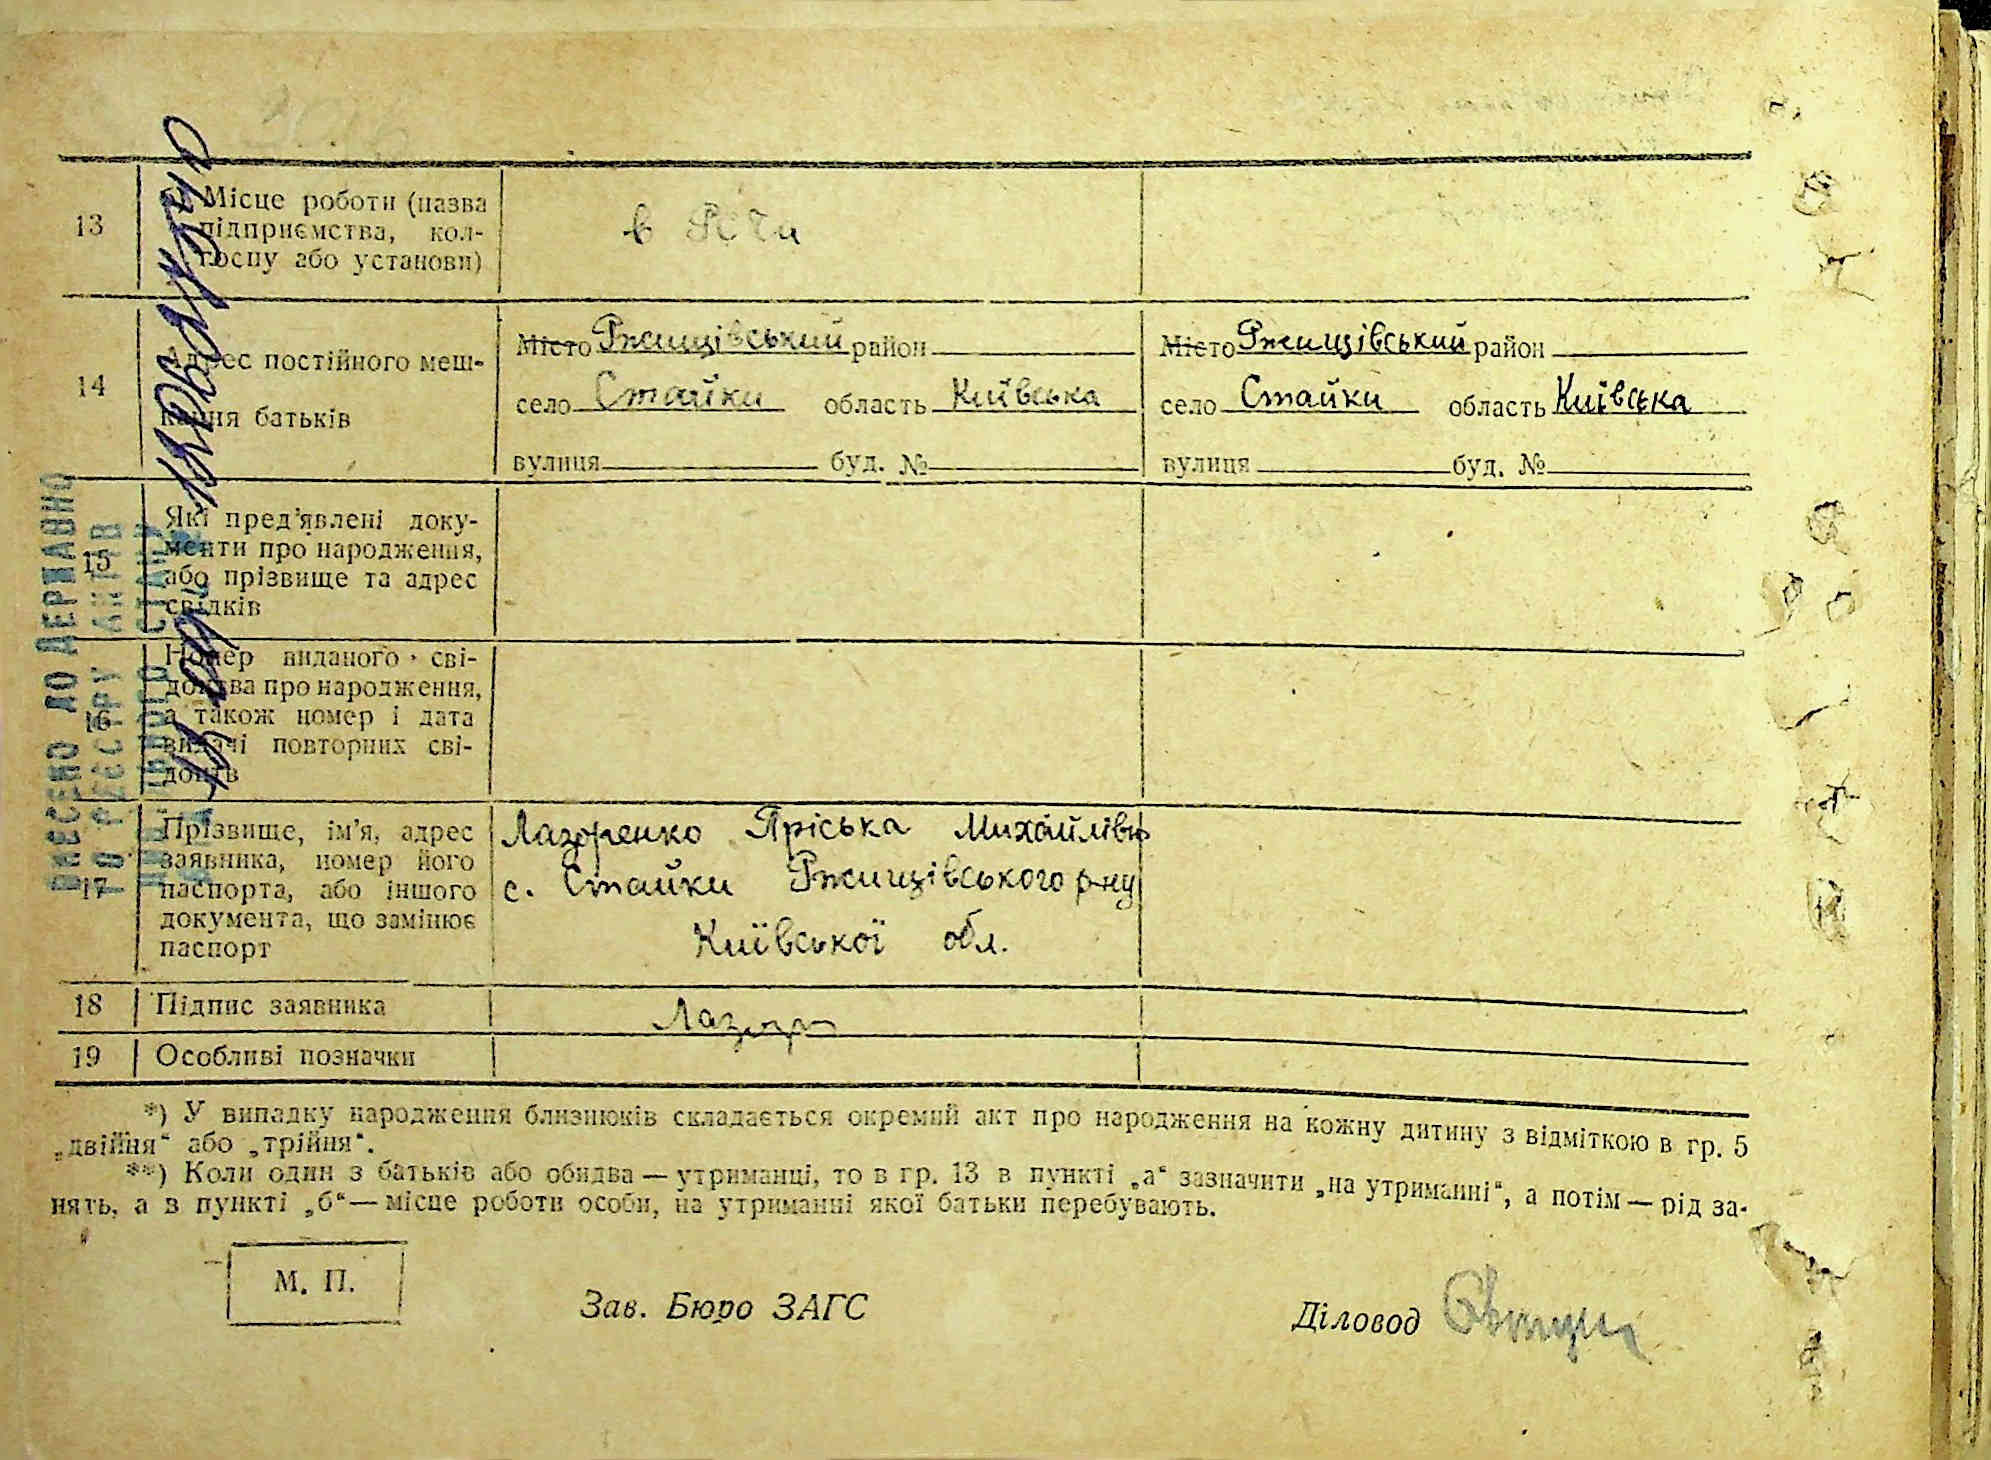 13
б) Місце роботи (назва
підприємства, кол-
госпу або установи)
в РСЧа
14
Адрес постійного меш-
кання батьків
Місто Ржищівський район
село Стайки область Київська
вулиця буд. №
Місто Ржищівський район
село Стайки область Київська
вулиця буд. №
15
Які пред’явлені доку-
менти про народження,
або прізвище та адрес
свідків
16
Номер виданого сві-
доцтва про народження,
а також номер і дата
видачі повторних сві-
доцтв
17
Прізвище, ім’я, адрес
заявника, номер його
паспорта, або іншого
документа, що замінює
паспорт
Лазоренко Яріська Михайлівн
с. Стайки Ржищівського р-ну
Київської обл.
18
Підпис заявника
Лазор
19
Особливі позначки
*) У випадку народження близнюків складається окремий акт про народження на кожну дитину з відміткою в гр. 5
„двійня“ або „трійня“.
**) Коли один з батьків або обидва — утриманці, то в гр. 13 в пункті „а“ зазначити „на утриманні“, а потім — рід за-
нять, а в пункті „б“ — місце роботи особи, на утриманні якої батьки перебувають.
М. П.
Зав. Бюро ЗАГС
Діловод
ВНЕСЕНО ДО ДЕРЖАВНО
ГО РЕЄСТРУ АКТІВ
ЦИВІЛЬНОГО СТАНУ